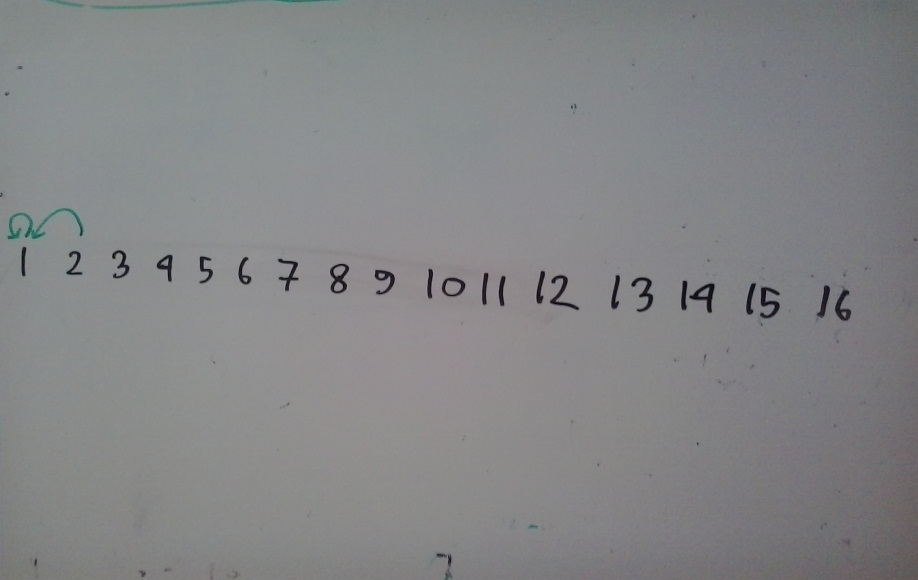 1 2 3 4 5 6 7 8 9 10 11 12 13 14 15 16